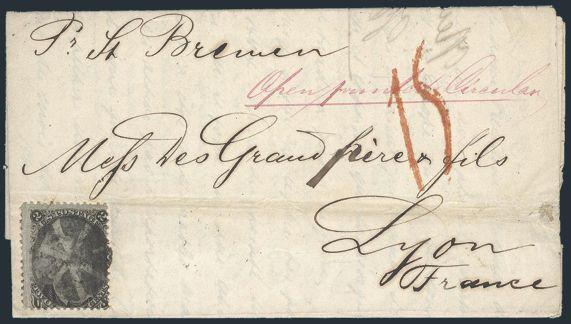 Pr St Bremen
Open printed Circular
15
Mess Des Grand père & fils
Lyon
France